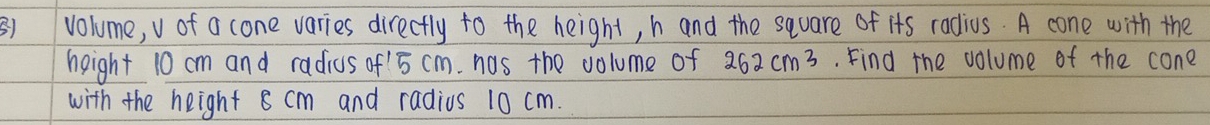 3) volume, v of a cone varies directly to the height, h and the square of its radius. A cone with the
height 10 cm and radius of 5 cm. has the volume of 262 cm3. Find the volume of the cone
with the height 8 cm and radius 10 cm.